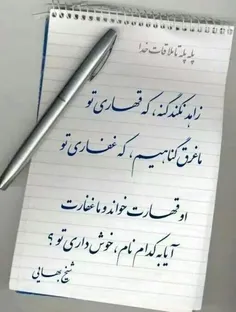 پله پله تا ملاقات خدا
زاهد نکند گنه، که قهاری تو
ما غرق گناهیم، که غفاری تو
او قهارت خواند و ما غفارت
آیا به کدام نام، خوش داری تو؟
شیخ بهایی